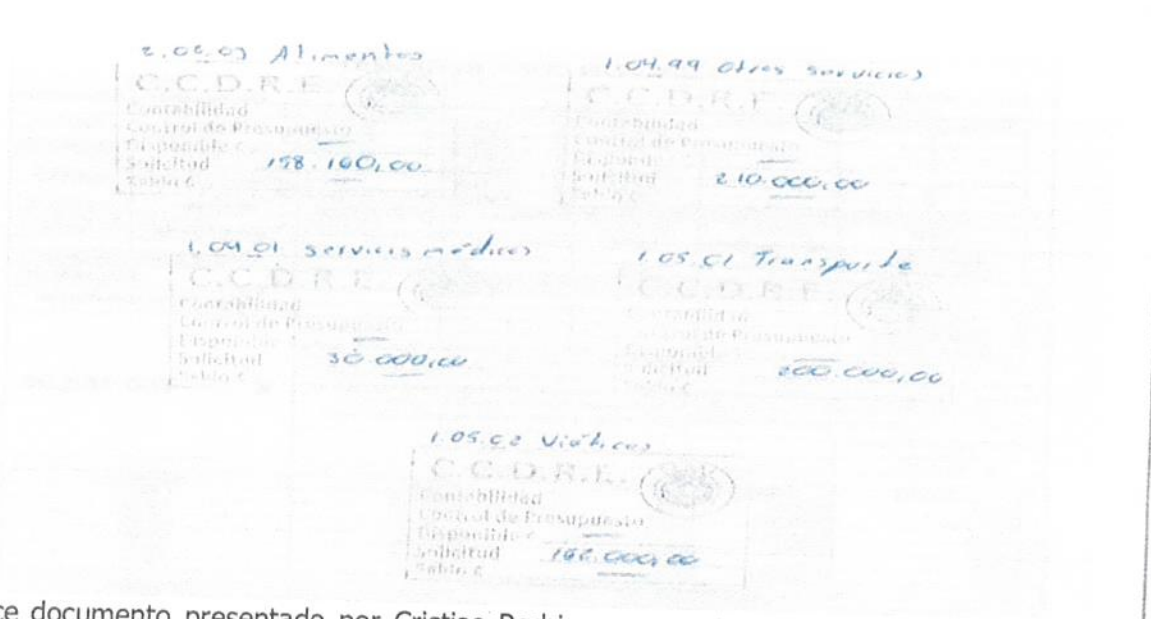 Alimentos
C.C.D.R.E.
Contabilidad
Control de Presupuesto
Disponible ¢
Solicitud 158.160,00
Saldo ¢
1.04.99 Otros servicios
C.C.D.R.E.
Contabilidad
Control de Presupuesto
Disponible
Solicitud 210.000,00
Saldo ¢
1.04.01 servicios médicos
C.C.D.R.E.
Contabilidad
Control de Presupuesto
Disponible
Solicitud 30.000,00
Saldo ¢
1.05.01 Transporte
C.C.D.R.E.
Contabilidad
Control de Presupuesto
Disponible
Solicitud 200.000,00
Saldo ¢
1.05.02 Viáticos
C.C.D.R.E.
Contabilidad
Control de Presupuesto
Disponible ¢
Solicitud 162.000,00
Saldo ¢
documento presentado por Cristian